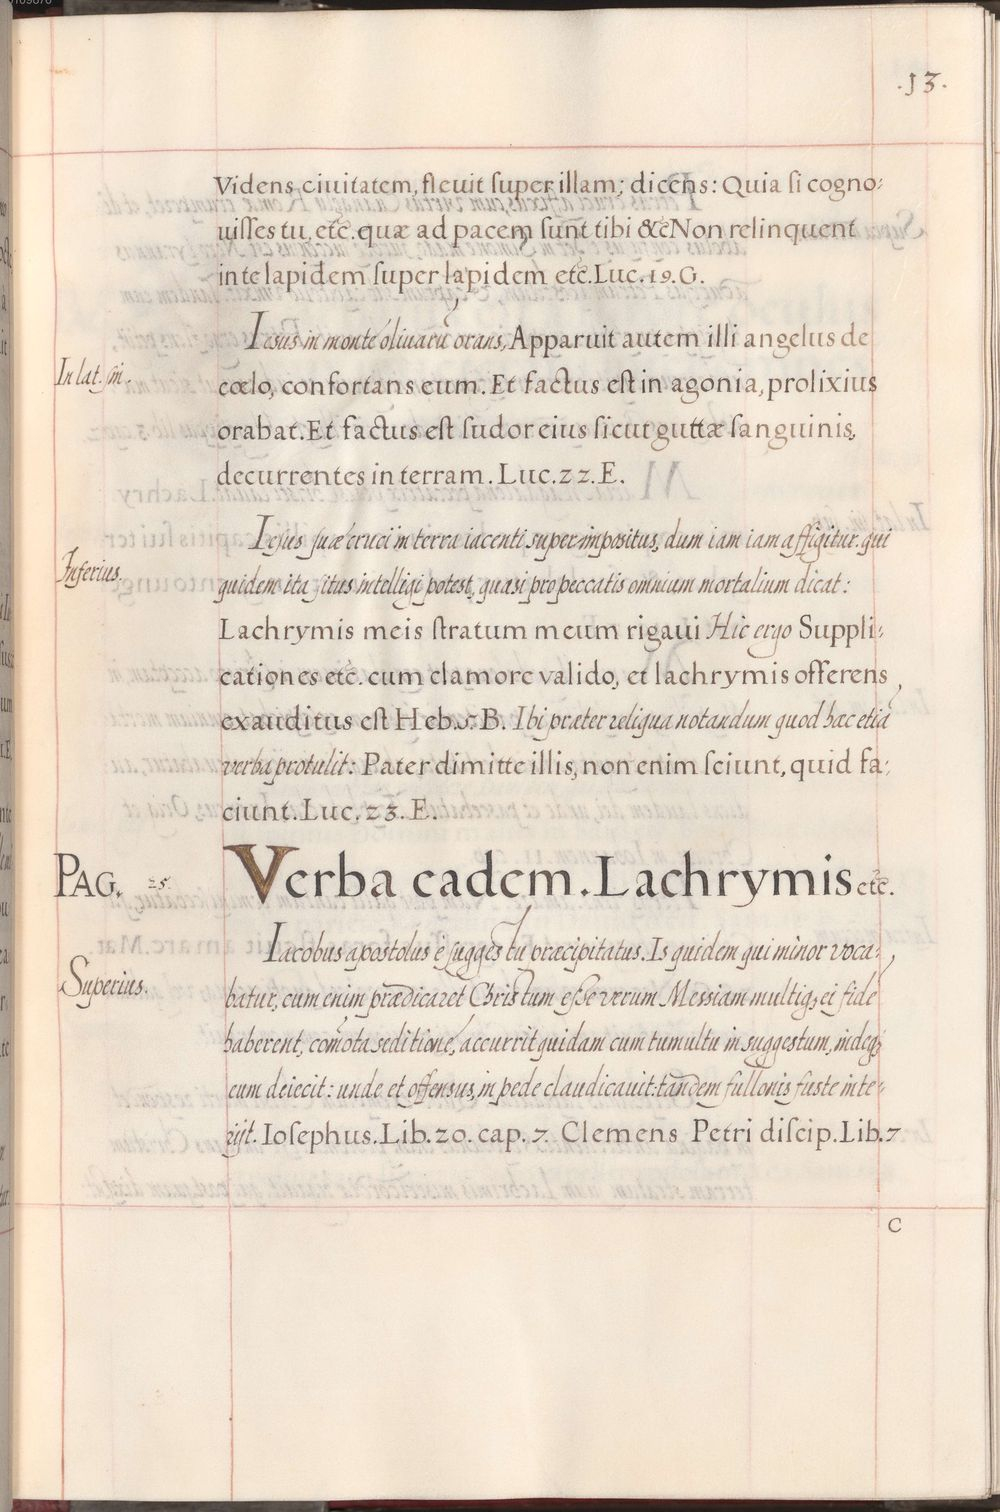 .13.
Videns ciuitatem, fleuit ſuper illam; dicens: Quia ſi cogno:
uiſſes tu, etc. quæ ad pacem ſunt tibi &c Non relinquent
in te lapidem ſuper lapidem etc. Luc. 19. G.
Iesus in monte oliuarū orans, Apparuit autem illi angelus de
In lat. ſin.
cœlo, confortans eum. Et factus eſt in agonia, prolixius
orabat. Et factus eſt ſudor eius ſicut guttæ ſanguinis,
decurrentes in terram. Luc. 22. E.
Iesus ſuæ cruci in terra iacenti superimpositus, dum iam iam affigitur. qui
Inferius.
quidem ita ſitus intelligi potest, quasi pro peccatis omnium mortalium dicat:
Lachrymis meis ſtratum meum rigaui Hic ergo Suppli:
cationes etc. cum clamore valido, et lachrymis offerens
exauditus eſt Heb. 5. B. Ibi præter reliqua notandum quod hæc etiā
verba protulit: Pater dimitte illis, non enim ſciunt, quid fa:
ciunt. Luc. 23. E.
PAG. 25. Verba eadem. Lachrymis etc.
Iacobus apostolus è ſuggestu præcipitatus. Is quidem qui minor voca:
Superius.
batur, cum enim prædicaret Christum eſse verum Messiam multiq; ei fidē
haberent, comota seditione, accurrit quidam cum tumultu in suggestum, indeq;
eum deiecit: unde et offensus, in pede claudicauit: tandem fullonis fuste inte:
rijt. Ioſephus. Lib. 20. cap. 7. Clemens Petri diſcip. Lib. 7
C